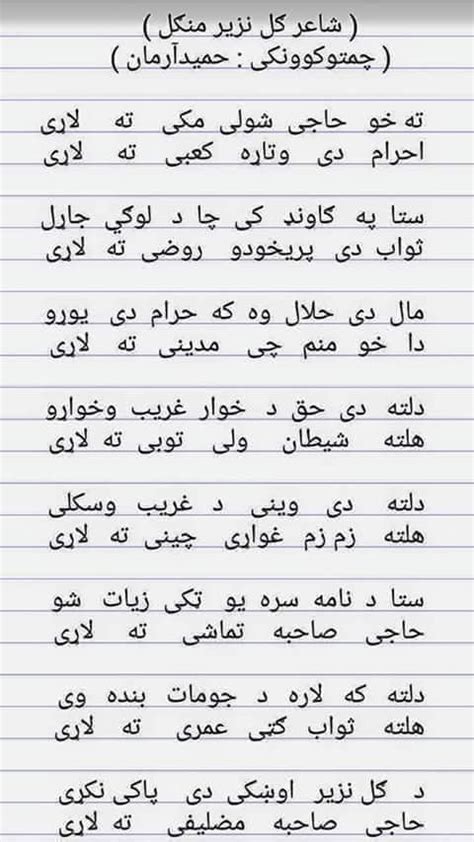 ( شاعر ګل نزیر منګل )
( چمتوکوونکی : حمیدآرمان )
ته خو حاجی شولی مکی ته لاړی
احرام دی وتاړه کعبی ته لاړی
ستا په ګاونډ کی چا د لوګي جاړل
ثواب دی پریخودو روضی ته لاړی
مال دی حلال وه که حرام دی یوړو
دا خو منم چی مدینی ته لاړی
دلته دی حق د خوار غریب وخواړو
هلته شیطان ولی توبی ته لاړی
دلته دی وینی د غریب وسکلی
هلته زم زم غواړی چینی ته لاړی
ستا د نامه سره یو ټکی زیات شو
حاجی صاحبه تماشی ته لاړی
دلته که لاره د جومات بنده وی
هلته ثواب ګټی عمری ته لاړی
د ګل نزیر اوښکی دی پاکی نکړی
حاجی صاحبه مضلیفی ته لاړی